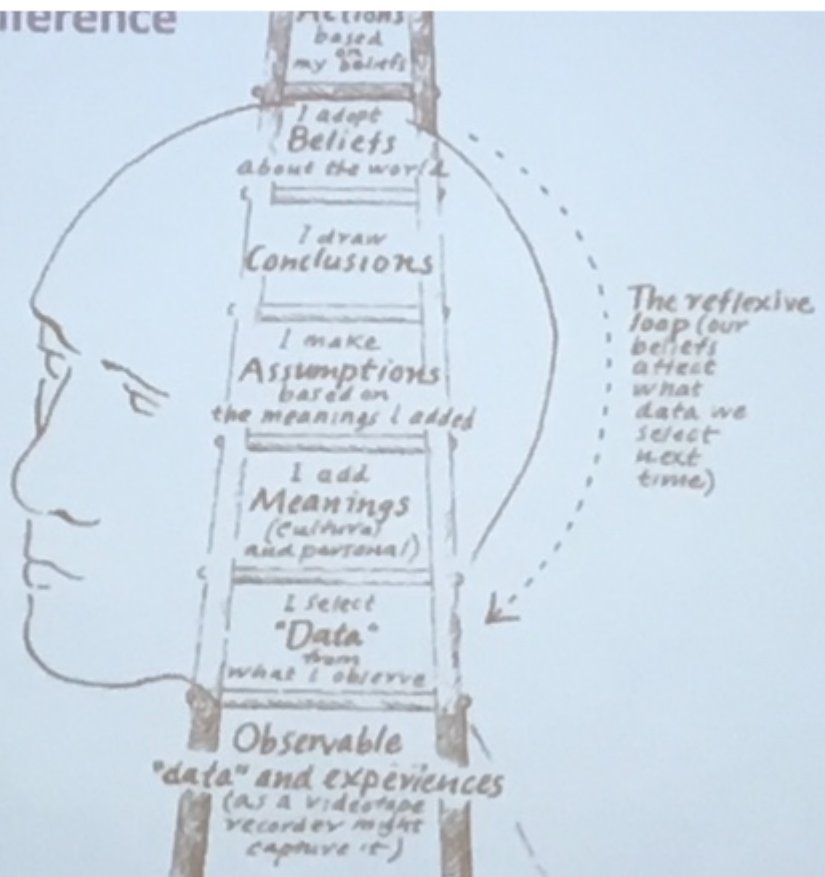 ference
Actions
based
on
my beliefs
I adopt
Beliefs
about the world
I draw
Conclusions
I make
Assumptions
based on
the meanings I added
I add
Meanings
(Cultural
and personal)
I select
"Data"
from
what I observe
Observable
"data" and experiences
(as a videotape
recorder might
capture it)
The reflexive
loop (our
beliefs
affect
what
data we
select
next
time)